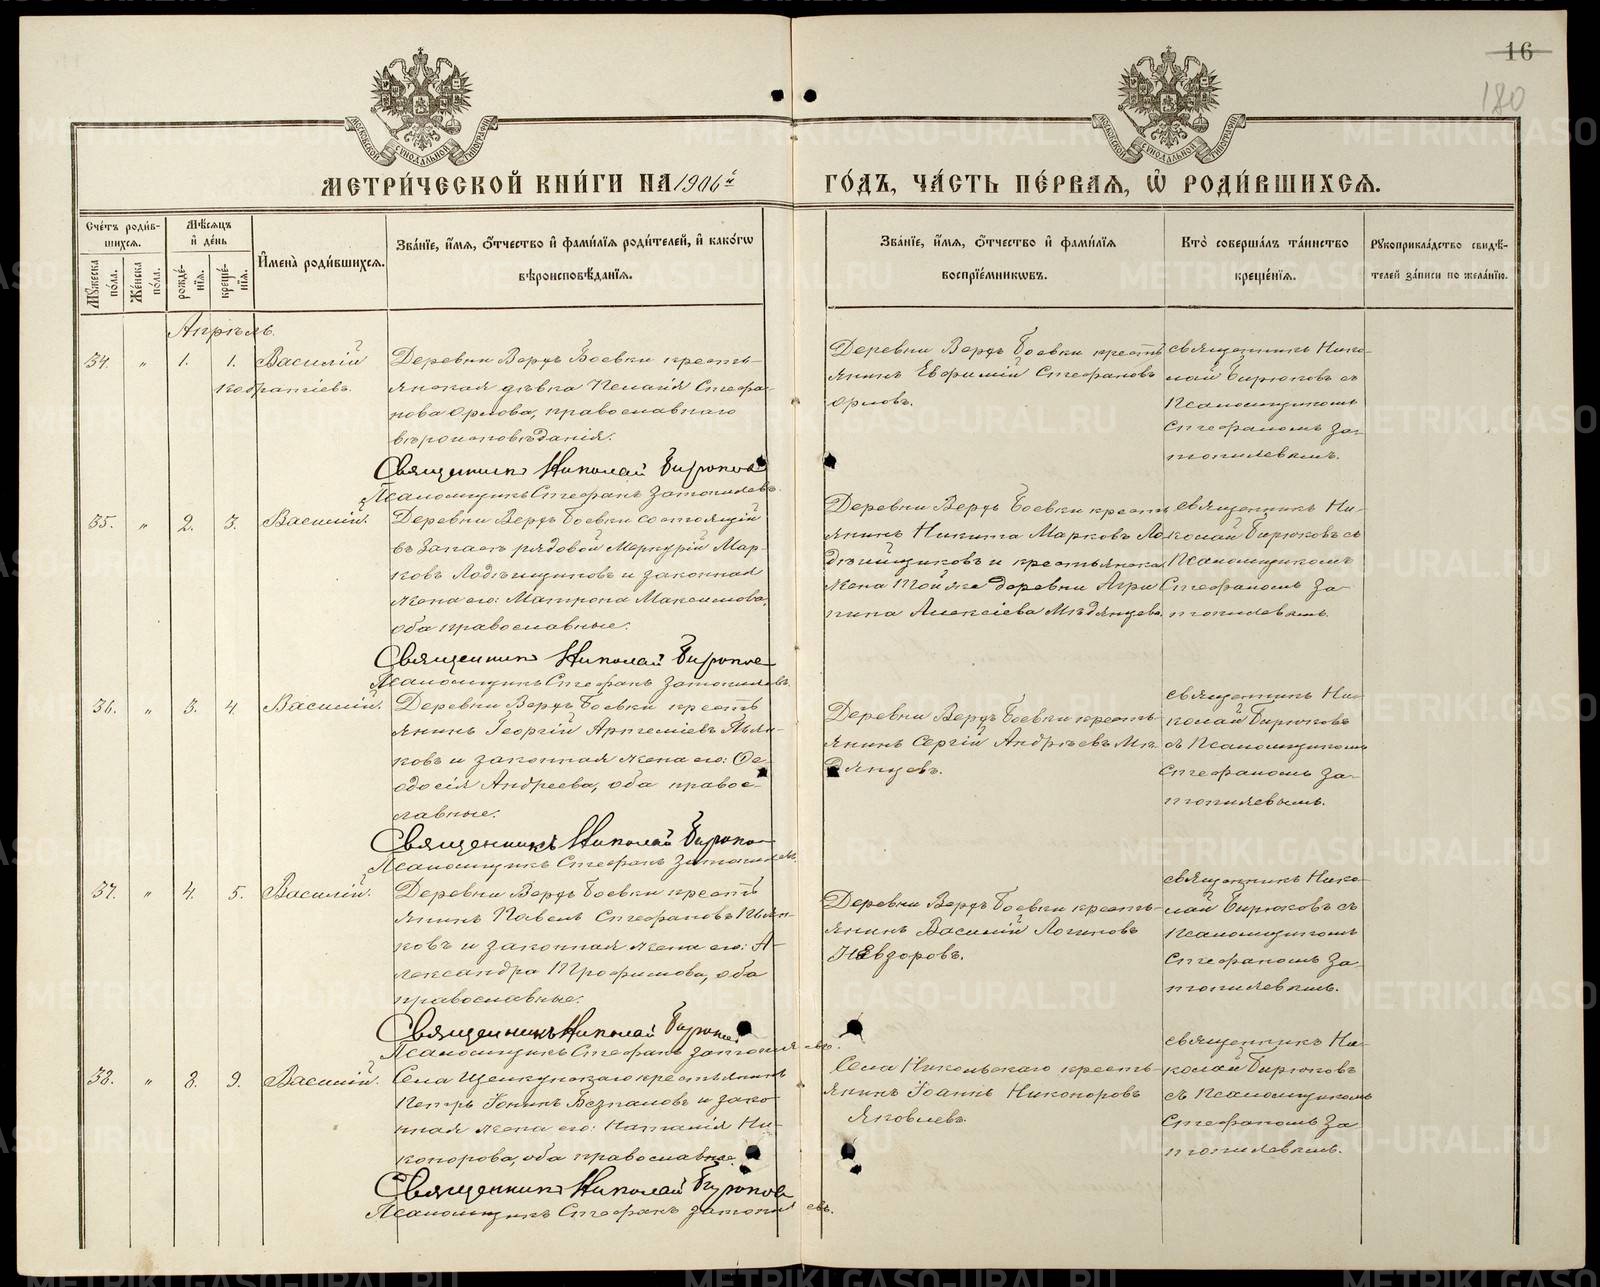 16
180
МЕТРИ́ЧЕСКОЙ КНИ́ГИ НА 1906й ГО́ДЪ, ЧА́СТЬ ПЕ́РВАЯ, Ѿ РОДИ́ВШИХСЯ.
Сче́тъ роди́в-
шихся.
Мѣ́сяцъ
и де́нь
Мꙋ́жеска
по́ла.
Же́нска
по́ла.
рожде́-
нїя.
креще́-
нїя.
Имена̀ роди́вшихся.
Зва́нїе, и́мя, о́тчество и фами́лїя роди́телей, и како́гѡ
вѣроисповѣ́данїя.
Зва́нїе, и́мя, о́тчество и фами́лїя
воспрїе́мникѡвъ.
Кто̀ соверша́лъ та́инство
креще́нїя.
Рꙋкоприкла́дство свидѣ́-
телей за́писи по жела́нїю.
Апрѣль.
34. „ 1. 1. Василій
Кодратіевъ.
Деревни Верхъ Боевки кресть-
янская дѣвка Пелагія Стефа-
нова Орлова, православнаго
вѣроисповѣданія.
Священникъ Николай Бирюковъ
Псаломщикъ Стефанъ Затопляевъ.
Деревни Верхъ Боевки кресть
янинъ Евфимій Стефановъ
Орловъ.
священникъ Нико-
лай Бирюковъ съ
Псаломщикомъ
Стефаномъ За-
топляевымъ.
35. „ 2. 3. Василій.
Деревни Верхъ Боевки состоящій
въ Запасѣ рядовой Меркурій Мар-
ковъ Лодѣйщиковъ и законная
жена его: Матрона Максимова,
оба православные.
Священникъ Николай Бирюков
Псаломщикъ Стефанъ Затопляевъ.
Деревни Верхъ Боевки кресть
янинъ Никита Марковъ Ло-
дѣйщиковъ и крестьянска
жена той же деревни Агри
пина Алексіева Мѣдянцева
священникъ Ни-
колай Бирюковъ съ
Псаломщикомъ
Стефаномъ За
топляевымъ.
36. „ 3. 4. Василій.
Деревни Верхъ Боевки кресть
янинъ Георгій Артеміевъ Пьян-
ковъ и законная жена его: Ѳе-
одосія Андреева, оба правос-
лавные.
Священникъ Николай Бирюков
Псаломщикъ Стефанъ Затопляевъ.
Деревни Верхъ Боевки кресть-
янинъ Сергій Андрѣевъ Мѣ-
дянцевъ.
священникъ Ни-
колай Бирюковъ
съ Псаломщикомъ
Стефаномъ За-
топляевымъ.
37. „ 4. 5. Василій.
Деревни Верхъ Боевки кресть
янинъ Павелъ Стефановъ Пьян-
ковъ и законная жена его: А-
лександра Трофимова, оба
православные.
Священникъ Николай Бирюков
Псаломщикъ Стефанъ Затопляевъ.
Деревни Верхъ Боевки кресть-
янинъ Василій Логиновъ
Невзоровъ.
священникъ Нико-
лай Бирюковъ съ
Псаломщикомъ
Стефаномъ За-
топляевымъ.
38. „ 8. 9. Василій.
Села Щелкунскаго крестьянинъ
Петръ Іонинъ Безпаловъ и зако-
нная жена его: Наталія Ни-
конорова, оба православные.
Священникъ Николай Бирюков
Псаломщикъ Стефанъ Затопляевъ.
Села Никольскаго кресть-
янинъ Іоаннъ Никоноровъ
Яковлевъ.
священникъ Ни-
колай Бирюковъ
съ Псаломщикомъ
Стефаномъ За
топляевымъ.
METRIKI.GASO-URAL.RU